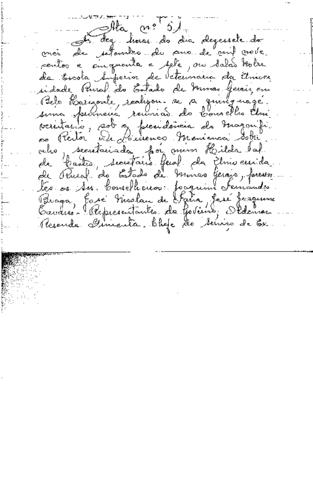 Ata nº 51
Às dez horas do dia dezessete do
mês de setembro do ano de mil nove
centos e cinquenta e sete, no Salão Nobre
da Escola Superior de Veterinária da Univer
sidade Rural do Estado de Minas Gerais, em
Belo Horizonte, realizou-se a quinquagé
sima primeira reunião do Conselho Uni
versitário, sob a presidência do Magnífi
co Reitor Dr. Lourenço Menicucci Sobri
nho, secretariada por mim Hilda
de Castro, secretária Geral da Universida
de Rural do Estado de Minas Gerais, presen
tes os Srs. Conselheiros: Joaquim Fernandes
Braga, José Nicolau de Faria, José Joaquim
Representantes do Govêrno, Ildemar
Resende Pimenta - Chefe do Serviço de Ex.